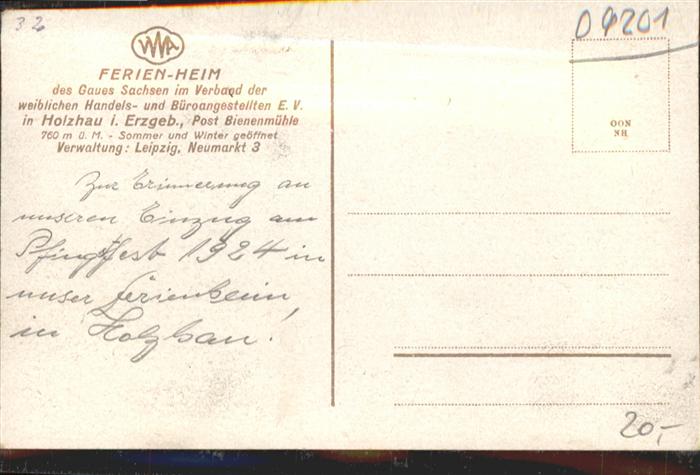 32
VWA
FERIEN-HEIM
des Gaues Sachsen im Verband der
weiblichen Handels- und Büroangestellten E. V.
in Holzhau i. Erzgeb., Post Bienenmühle
760 m ü. M. - Sommer und Winter geöffnet
Verwaltung: Leipzig, Neumarkt 3
Zur Erinnerung an
unseren Einzug am
Pfingstfest 1924 in
unser Ferienheim,
in Holzhau.
09201
NOO
NH
20,-